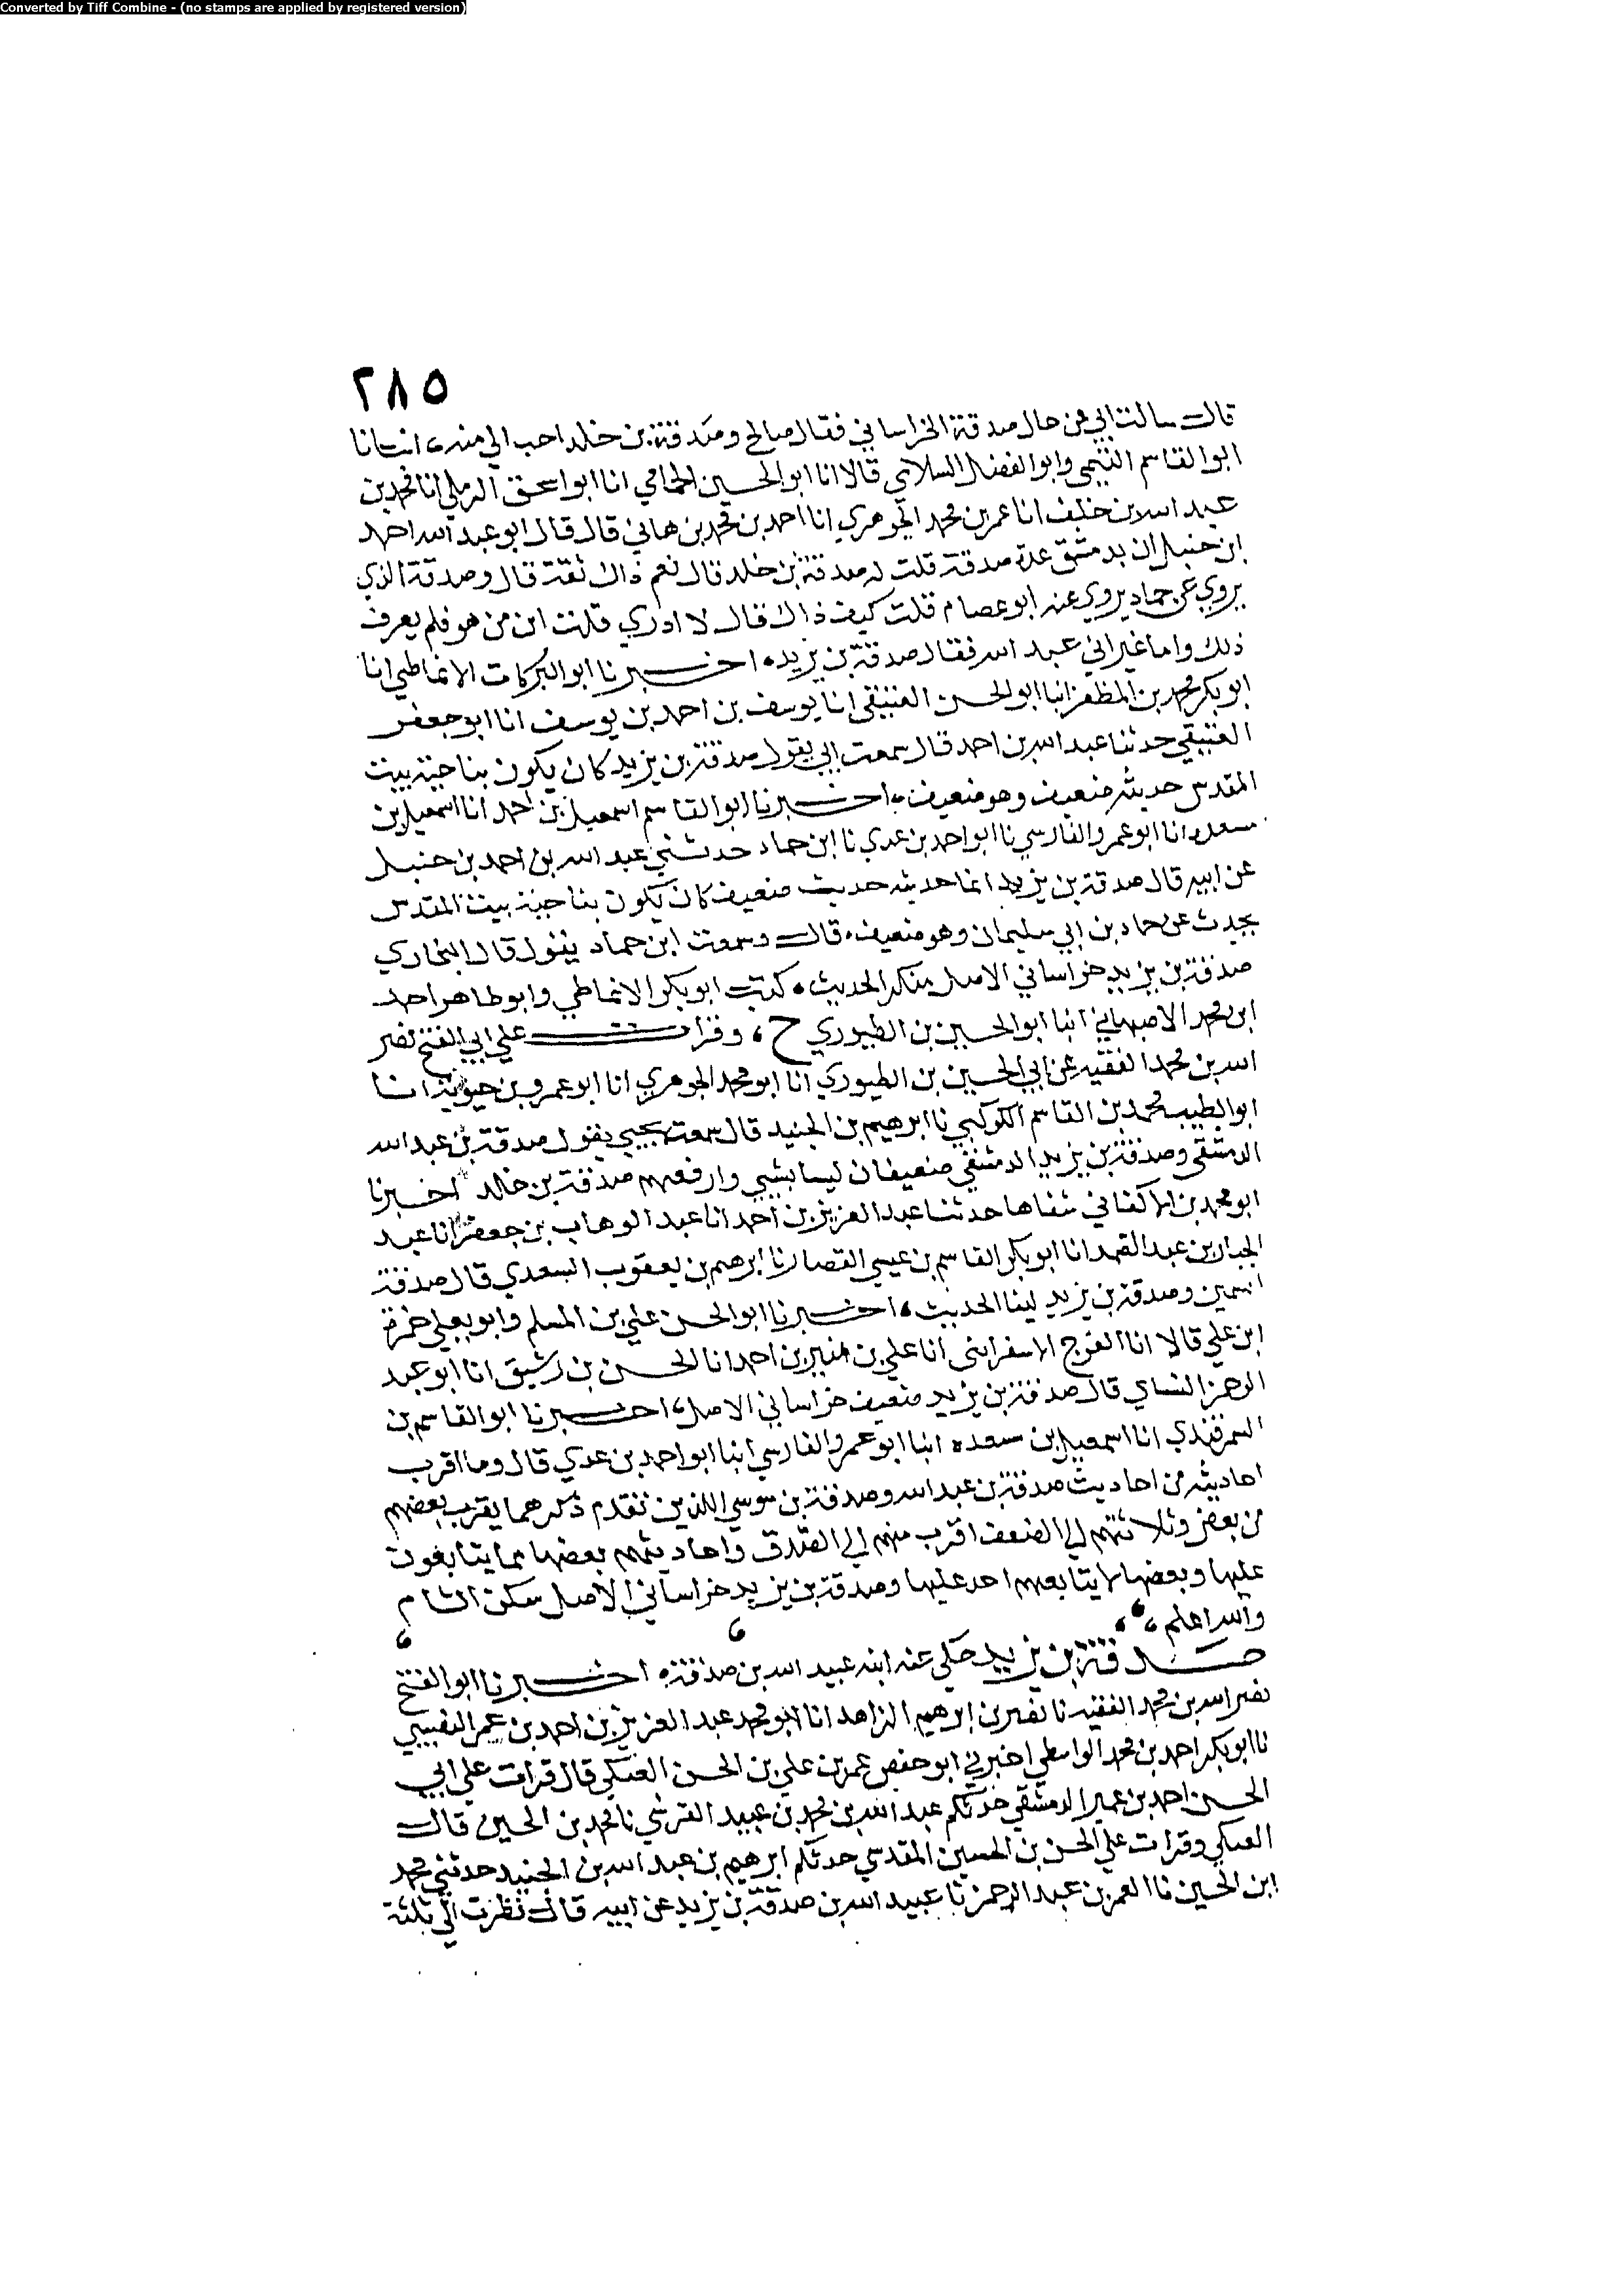 Converted by Tiff Combine - (no stamps are applied by registered version)
٢٨٥
قال سالت ابي عن حال صدقة الخراساني فقال صالح وصدقة بن خلد احب الي منه، انبانا
ابوالقاسم التيمي وابوالفضل السلامي قالا انا ابوالحسين الحمامي انا ابواسحق الرملي انا محمد بن
عبد الله بن خلف انا عمر بن محمد الجوهري انا احمد بن محمد بن هاني قال قال ابو عبد الله احمد
ابن حنبل ان بدمشق عدة صدقة قلت له صدقة بن خلد قال نعم ذاك ثقة قال وصدقة الذي
يروي عن حماد يروي عنه ابو عصام قلت كيف ذاك قال لا ادري قلت ابن من هو فلم يعرف
ذلك واما غير ابي عبد الله فقال صدقة بن يزيد، اخبرنا ابوالبركات الانماطي انا
ابوبكر محمد بن المظفر انبا ابوالحسن العتيقي انا يوسف بن احمد بن يوسف انا ابوجعفر
العقيلي حدثنا عبد الله بن احمد قال سمعت ابي يقول صدقة بن يزيد كان يكون بناحية بيت
المقدس حديثه ضعيف وهو ضعيف، اخبرنا ابوالقاسم اسمعيل بن احمد انا اسمعيل بن
مسعدة انا ابوعمرو الفارسي نا ابواحمد بن عدي نا ابن حماد حدثني عبد الله بن احمد بن حنبل
عن ابيه قال صدقة بن يزيد انما حديثه حديث ضعيف كان يكون بناحية بيت المقدس
يحدث عن حماد بن ابي سليمان وهو ضعيف، قال وسمعت ابن حماد يقول قال البخاري
صدقة بن يزيد خراساني الاصل منكر الحديث، كتب ابوبكر الانماطي وابوطاهر احمد
ابن محمد الاصبهاني انبا ابوالحسين بن الطيوري ح، وقرات علي ابي الفتح نصر
الله بن محمد الفقيه عن ابي الحسين بن الطيوري انا ابومحمد الجوهري انا ابوعمرو بن حيويه انا
ابوالطيب محمد بن القاسم الكوكبي نا ابرهيم بن الجنيد قال سمعت يحيي يقول صدقة بن عبد الله
الدمشقي وصدقة بن يزيد الدمشقي ضعيفان ليسا بشيي وارفعهم صدقة بن خالد اخبرنا
ابومحمد بن الاكفاني شفاها حدثنا عبد العزيز بن احمد انا عبد الوهاب بن جعفر انا عبد
الجبار بن عبد الصمد انا ابوبكر القاسم بن عيسي القصار نا ابرهيم بن يعقوب السعدي قال صدقة
السمين وصدقة بن يزيد لينا الحديث، اخبرنا ابوالحسن علي بن المسلم وابويعلي حمزة
ابن علي قالا انا الفرج الاسفراينى انا علي بن منير بن احمد انا الحسن بن رشيق انا ابوعبد
الرحمن النساي قال صدقة بن يزيد ضعيف خراساني الاصل، اخبرنا ابوالقاسم بن
السمرقندي انا اسمعيل بن مسعده انبا ابوعمرو الفارسي انبا ابواحمد بن عدي قال وما اقرب
احاديثه من احاديث صدقة بن عبد الله وصدقة بن موسي اللذين تقدم ذكرهما يقرب بعضهم
من بعض وثلاثتهم الي الضعف اقرب منهم الي الصدق واحاديثهم بعضها مما يتابعون
عليها وبعضها لا يتابعهم احد عليها وصدقة بن يزيد خراساني الاصل سكن الشام
والله اعلم،
صدقة بن يزيد حكي عنه ابنه عبيد الله بن صدقة، اخبرنا ابوالفتح
نصر الله بن محمد الفقيه نا نصر بن ابرهيم الزاهد انا ابومحمد عبد العزيز بن احمد بن عمر النصيبي
نا ابوبكر احمد بن محمد الواسطي اخبرني ابوحفص عمر بن علي بن الحسن العتكي قال قرات علي ابي
الحسن احمد بن عمير الدمشقي حدثكم عبد الله بن محمد بن عبيد القرشي نا محمد بن الحسين قال
العتكي وقرات علي الحسن بن الحسين المقدسي حدثكم ابرهيم بن عبد الله بن الجنيد حدثني محمد
ابن الحسين نا العمر بن عبد الرحمن نا عبيد الله بن صدقة بن يزيد عن ابيه قال نظرت الي ثلثة